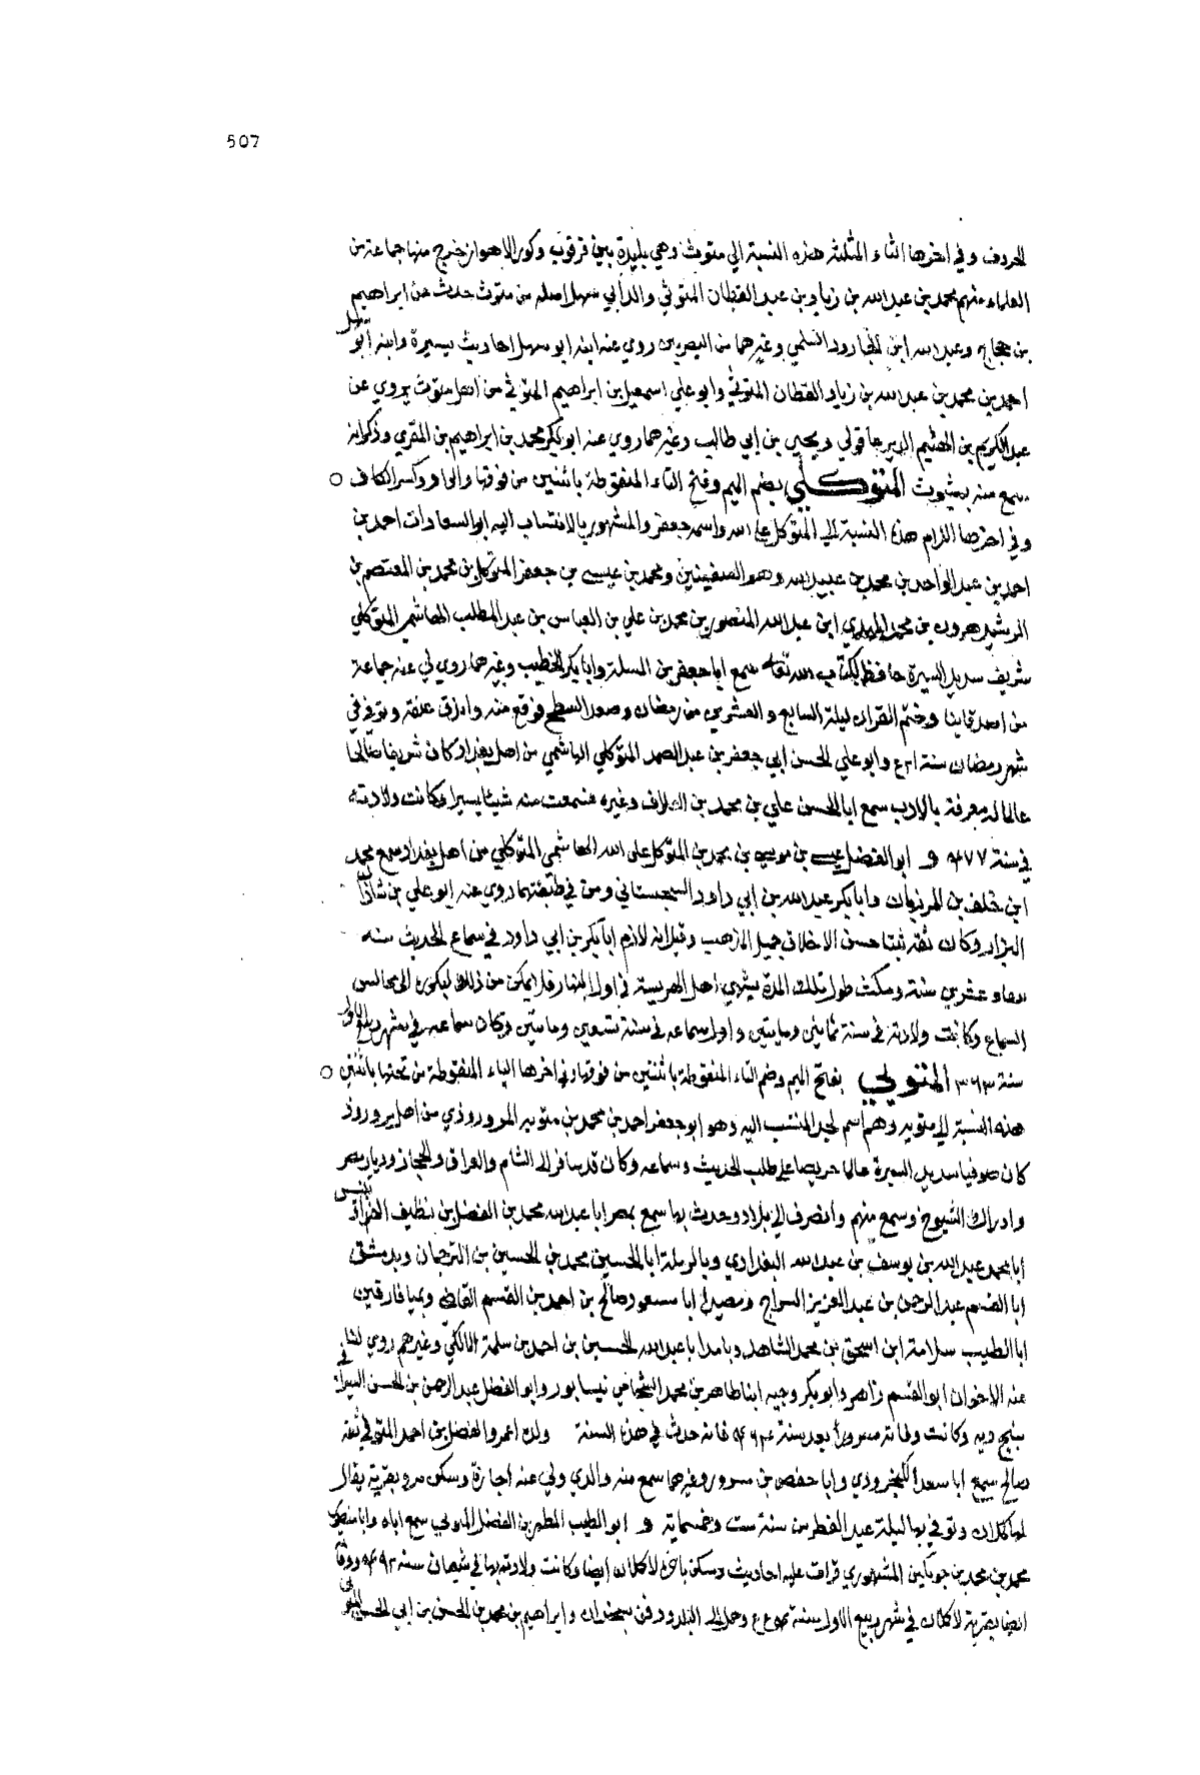 507
الحروف وفي اخرها الثاء المثلثة هذه النسبة الي متوث وهي بليدة بين قرقوب وكور الاهواز خرج منها جماعة من
العلماء منهم محمد بن عبد الله بن زياد بن عبد القطان المتوثي والد ابي سهل اصله من متوث حدث عن ابراهيم
بن حجاج وعبد الله ابن الجارود السلمي وغيرهما من البصريين روي عنه ابنه ابو سهل احاديث يسيرة وابنه ابو سهل
احمد بن محمد بن عبد الله بن زياد القطان المتوثي وابو علي اسمعيل بن ابراهيم المتوثي من اهل متوث يروي عن
عبد الكريم بن الهثيم الديرعاقولي ويحيي بن ابي طالب وغيرهما روي عنه ابو بكر محمد بن ابراهيم بن المقري وذكر انه
سمع منه بمتوث المتوكلي بضم الميم وفتح التاء المنقوطة باثنتين من فوقها والواو وكسر الكاف
وفي اخرها اللام هذه النسبة الي المتوكل علي الله واسمه جعفر والمشهور بالانتساب اليه ابو السعادات احمد بن
احمد بن عبد الواحد بن محمد بن عبيد الله وهو ومحمد بن عيسي بن جعفر المتوكل بن محمد بن المعتصم بن
الرشيد هرون بن محمد المهدي ابن عبد الله المنصور بن محمد بن علي بن العباس بن عبد المطلب الهاشمي المتوكلي
شريف سديد السيرة حافظ لكتاب الله تعالى سمع ابا جعفر بن المسلمة وابا بكر الخطيب وغيرهما روي لي عنه جماعة
من اصدقاينا وختم القران ليلة السابع والعشرين من رمضان وصعد السطح فوقع منه واندق عنقه وتوفي في
شهر رمضان سنة وابو علي الحسن ابي جعفر بن عبد الصمد المتوكلي الهاشمي من اهل بغداد كان شريفا صالحا
عالما له معرفة بالادب سمع ابا الحسن علي بن محمد بن العلاف وغيره سمعت منه شيئا يسيرا وكانت ولادته
في سنة ٤٧٧ و ابو الفضل عيسي بن موسي بن محمد بن المتوكل على الله الهاشمي المتوكلي من اهل بغداد سمع محمد
ابن خلف بن المرزبان وابا بكر عبد الله بن ابي داود السجستاني ومن في طبقتهما روي عنه ابو علي بن شاذان
البزاز وكان ثقة ثبتا حسن الاخلاق جميل المذهب وقيل انه لازم ابا بكر بن ابي داود في سماع الحديث منه
وعشرين سنة ومكث طول تلك المدة يشتهي اكل الهريسة في اول النهار فلا يمكن من ذلك لبكوره الى مجالس
السماع وكانت ولادته في سنة ثمانين ومايتين واول سماعه في سنة تسعين ومايتين وكان سماعه في شهر ربيع الاول
سنة ٣٦٣ المتولي بفتح الميم وضم التاء المنقوطة باثنتين من فوقها وفي اخرها الياء المنقوطة من تحتها باثنتين
هذه النسبة الي متويه وهو اسم لجد المنتسب اليه وهو ابو جعفر احمد بن محمد بن متويه المروروذي من اهل مروروذ
كان صوفيا سديد السيرة عالما حريصا علي طلب الحديث وسماعه وكان قد سافر الى الشام والعراق والحجاز وديار مصر
وادراك الشيوخ وسمع منهم وانصرف الي بلاده وحدث بها سمع بمصر ابا عبد الله محمد بن الفضل بن نظيف الفراء بتنيس
ابا محمد عبد الله بن يوسف بن عبد الله البغدادي وبالرملة ابا الحسين محمد بن الحسين بن الترجمان وبدمشق
ابا القسم عبد الرحمن بن عبد العزيز السراج وبصيدا ابا مسعود صالح بن احمد بن القسم القاضي وبميافارقين
ابا الطيب سلامة ابن اسحق بن محمد الشاهد وبامد ابا عبد الله الحسين بن احمد بن سلمة المالكي وغيرهم روي لنا
عنه الاخوان ابو القسم زاهر وابو بكر وجيه ابنا طاهر بن محمد الشحامي بنيسابور وابو الفضل عبد الرحمن بن الحسن السيرافي
ببنج ديه وكانت وفاته بمروروذ بعد سنة ٤٦٣ فانه حدث في هذه السنة وولده عمرو الفضل بن احمد المتولي ثقة
صالح سمع ابا سعد الكنجروذي وابا حفص بن مسرور وغيرهما سمع منه والدي ولي عنه اجازة وسكن مرو بقرية يقال
لها لاكلان وتوفي بها ليلة عيد الفطر من سنة ست وخمسماية و ابو الطيب المطهر بن الفضل المتولي سمع اباه وابا منصور
محمد بن محمد بن المشهوري قرات عليه احاديث وسكن باخره لاكلان ايضا وكانت ولادته بها في شعبان سنة ووفاته
ايضا بقرية لاكلان في شهر ربيع الاول سنة وحمل الى البلد ودفن وابراهيم بن محمد بن الحسن بن ابي الحسن